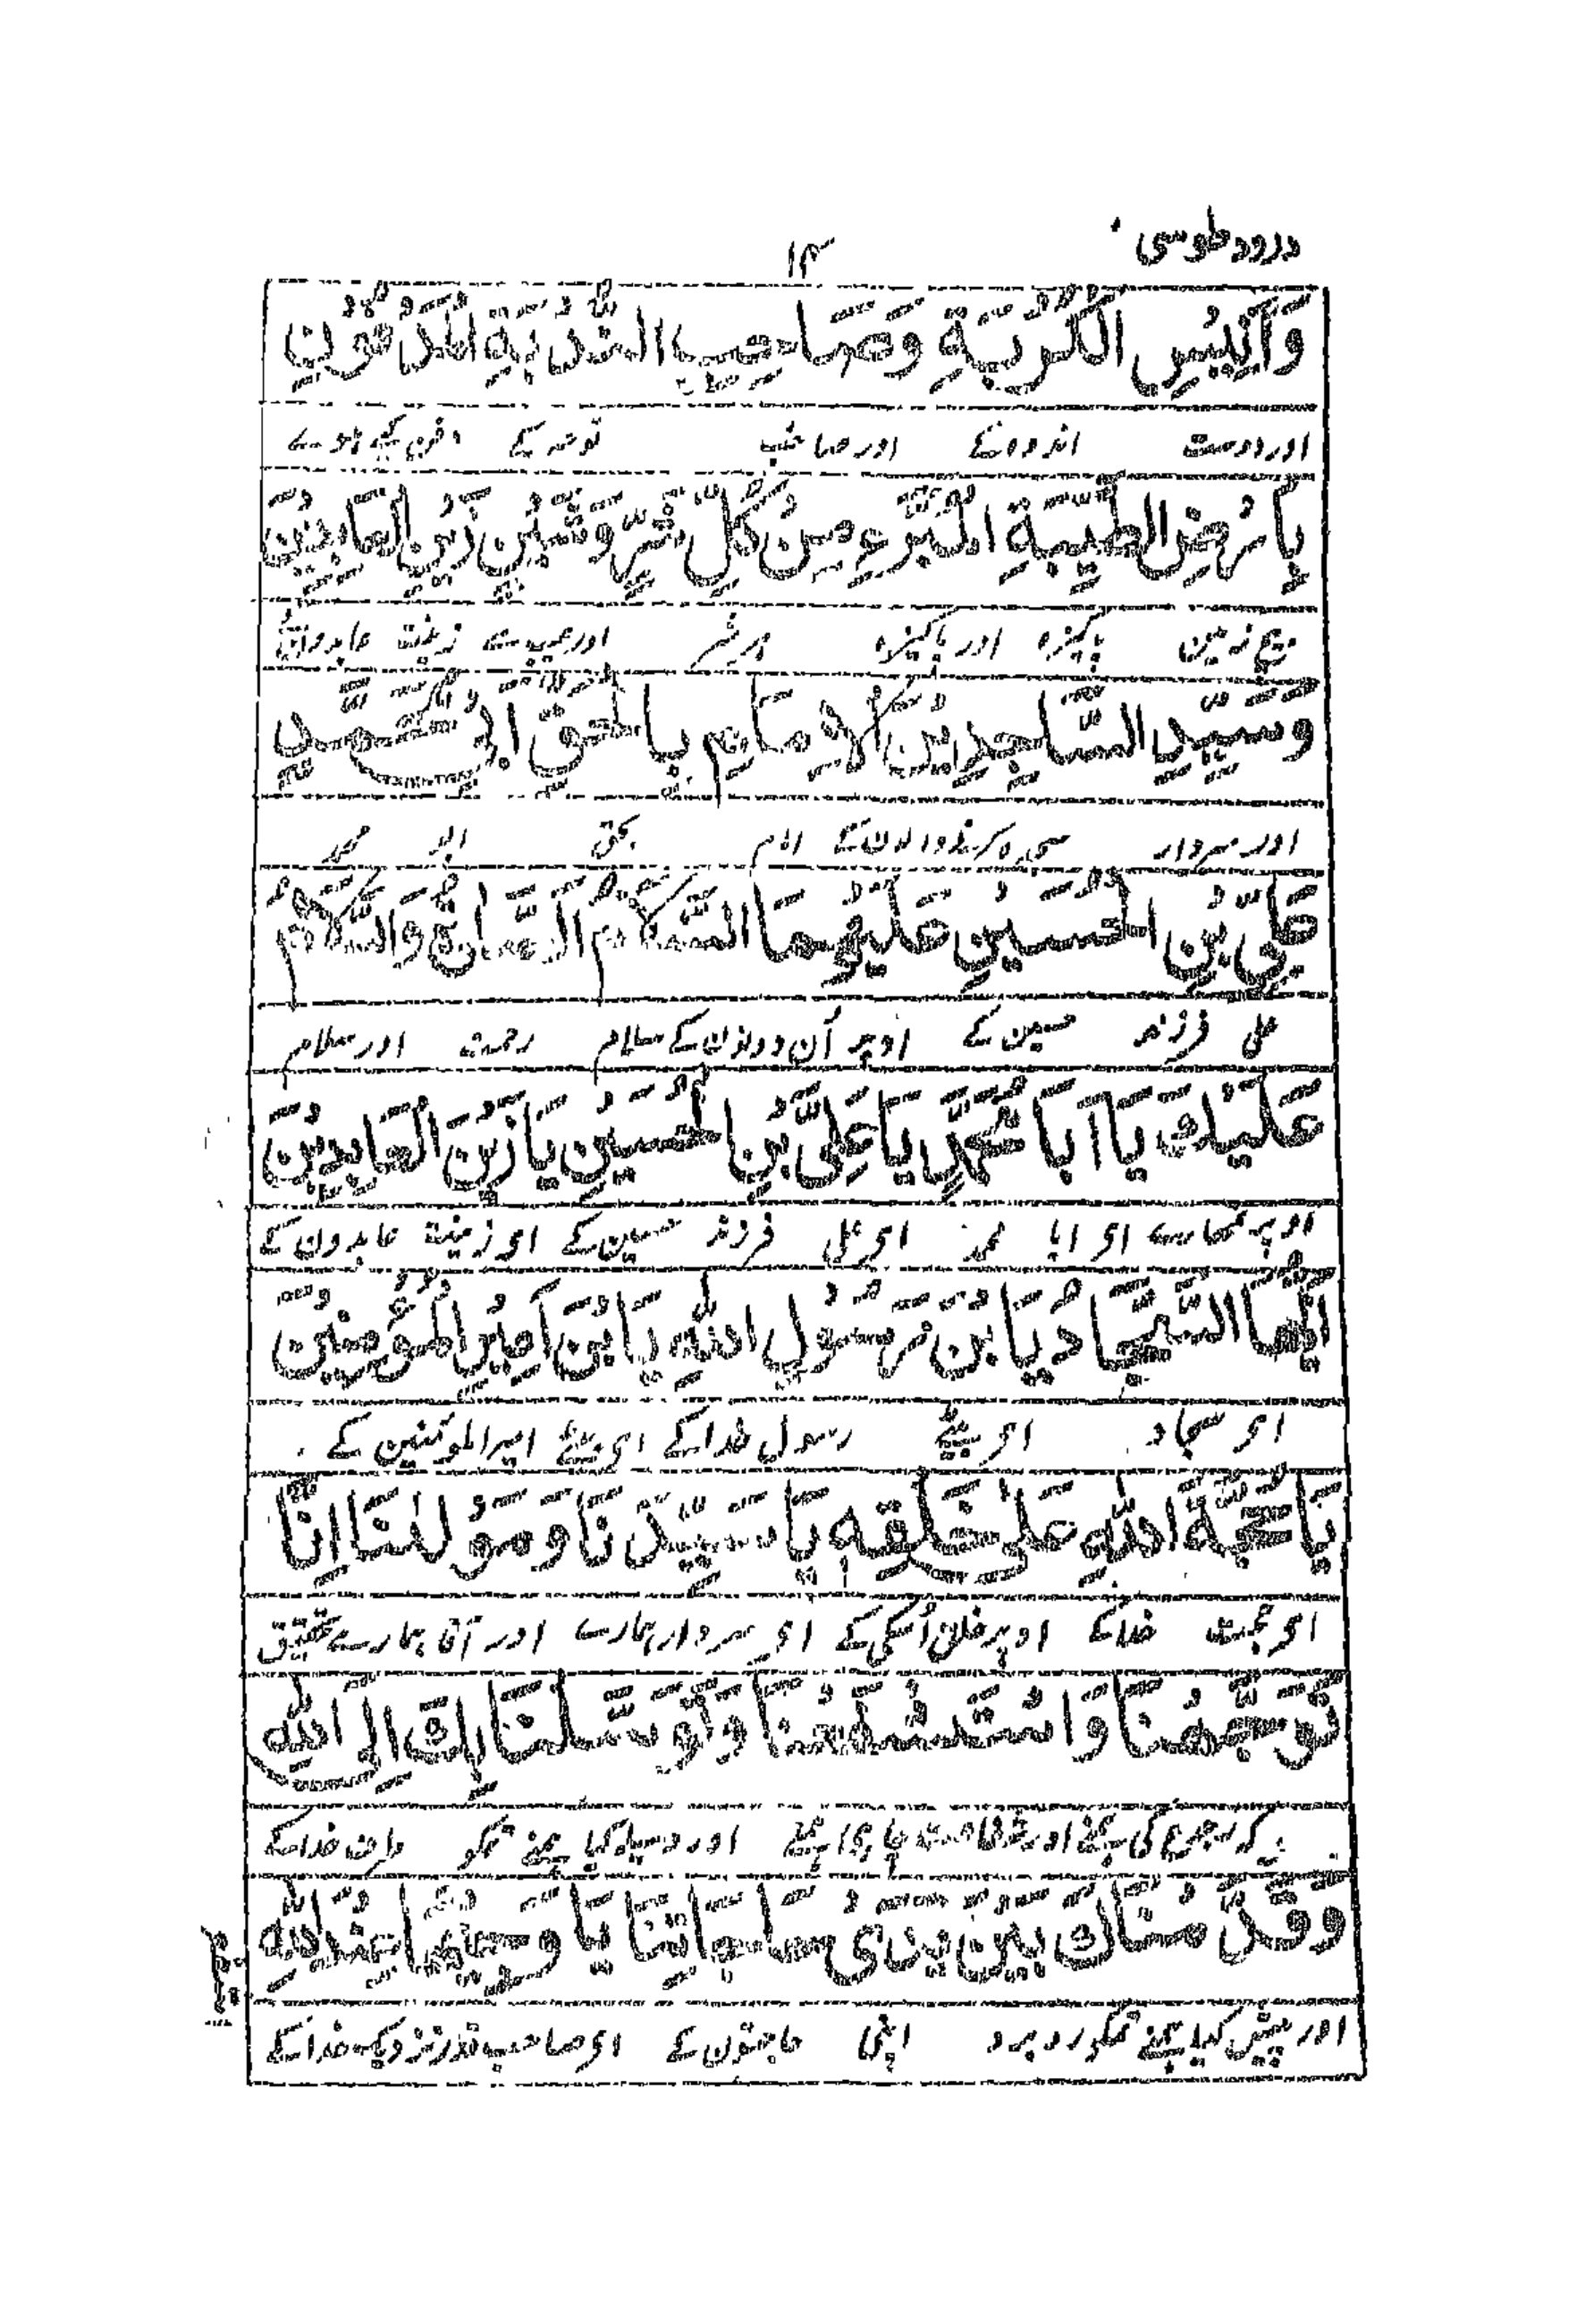 درود طوسی
۱۴
وَاَنِيْسِ الْكُرْبَةِ وَصَاحِبِ النُّدْبَةِ الْمَدْفُوْنِ
اور دوست اندوہ کے اور صاحب نوحہ کے دفن کیے ہوے
بِاَرْضِ الطَّيِّبَةِ الْمُبَرَّءِ مِنْ كُلِّ شَرٍّ وَشَيْنٍ زَيْنِ الْعَابِدِيْنَ
بیچ زمین پاکیزہ اور پاکیزہ ہر شر اور عیب سے زینت عابدون
وَسَيِّدِ السَّاجِدِيْنَ الْاِمَامِ بِالْحَقِّ اَبِيْ مُحَمَّدٍ
اور سردار سجدہ کرنیوالون کے امام بحق ابو محمد
عَلِيِّ بْنِ الْحُسَيْنِ عَلَيْهِمَا السَّلَامُ الصَّلٰوةُ وَالسَّلَامُ
علی فرزند حسین کے اوپر اُن دونون کے سلام رحمت اور سلام
عَلَيْكَ يَا اَبَا مُحَمَّدٍ يَا عَلِيَّ بْنَ الْحُسَيْنِ يَا زَيْنَ الْعَابِدِيْنَ
اوپر تمھارے ای ابا محمد ای علی فرزند حسین کے ای زینت عابدون کے
اَيُّهَا السَّجَّادُ يَا بْنَ رَسُوْلِ اللّٰهِ يَا بْنَ اَمِيْرِ الْمُؤْمِنِيْنَ
ای سجاد ای بیٹے رسول خدا کے ای بیٹے امیر المومنین کے
يَا حُجَّةَ اللّٰهِ عَلٰى خَلْقِهٖ يَا سَيِّدَنَا وَمَوْلٰنَا اِنَّا
ای حجت خدا کے اوپر خلق اُسکی کے ای سردار ہمارے اور آقا ہمارے تحقیق
تَوَجَّهْنَا وَاسْتَشْفَعْنَا وَتَوَسَّلْنَا بِكَ اِلَى اللّٰهِ
کہ رجوع کی ہمنے اور شفاعت چاہی ہمنے اور وسیلہ کیا ہمنے تمکو طرف خدا کے
وَقَدَّمْنَاكَ بَيْنَ يَدَيْ حَاجَاتِنَا يَا وَجِيْهًا عِنْدَ اللّٰهِ
اور پیش کیا ہمنے تمکو روبرو اپنی حاجتون کے ای صاحب قدر نزدیک خدا کے